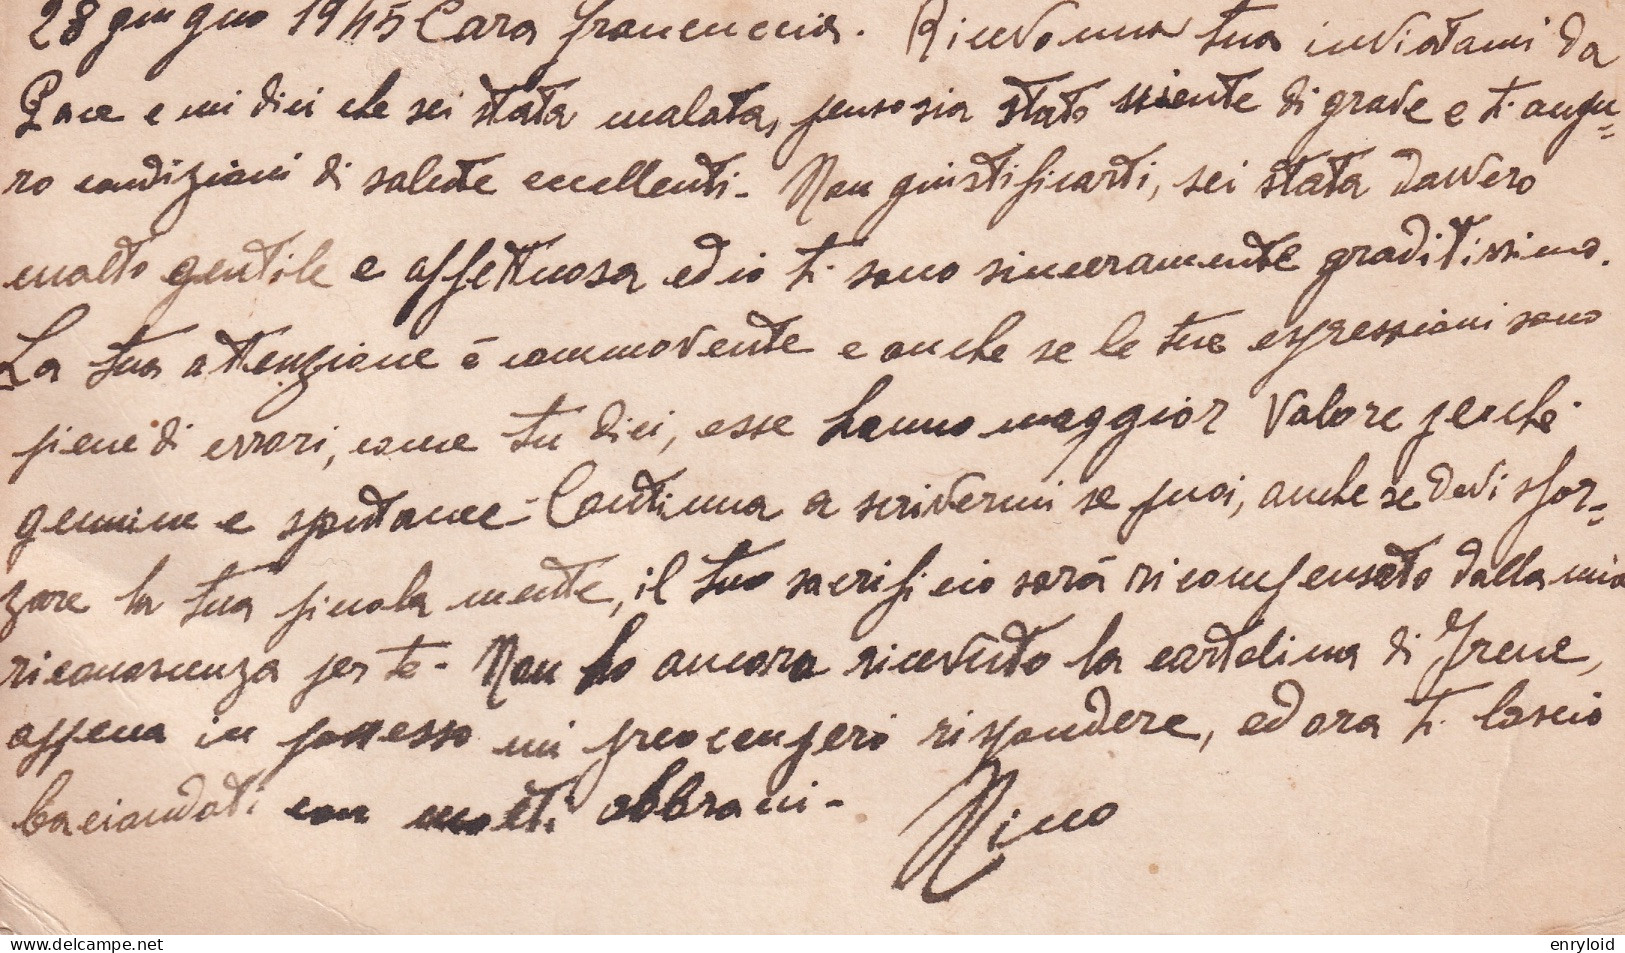 28 giugno 1945 Cara Francuccia. Ricevo una tua inviatami da
Pace e mi dici che sei stata malata, penso sia stato niente di grave e ti augu=
ro condizioni di salute eccellenti - Non giustificarti, sei stata davvero
molto gentile e affettuosa ed io ti sono sinceramente graditissimo.
La tua attenzione è commovente e anche se le tue espressioni sono
piene di errori, come tu dici, esse hanno maggior valore perchè
genuine e spontanee - Continua a scrivermi se puoi, anche se devi sfor=
zare la tua piccola mente, il tuo sacrificio sarà ricompensato dalla mia
riconoscenza per te - Non ho ancora ricevuto la cartolina di Irene,
appena in possesso mi preoccuperò rispondere, ed ora ti lascio
baciandoti con molti abbracci -
Nino
enryloid
delcampe.net